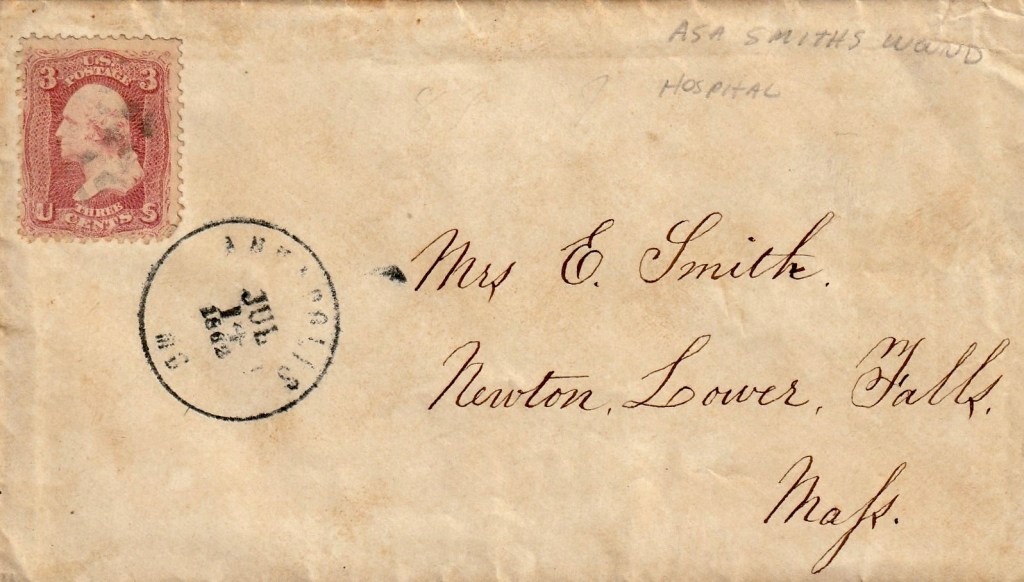 ASA SMITHS WOUND
HOSPITAL
3 U.S. 3
POSTAGE
THREE
U CENTS S
ANNAPOLIS
JUL
14
1862
MD
Mrs E. Smith.
Newton, Lower, Falls.
Maſs.